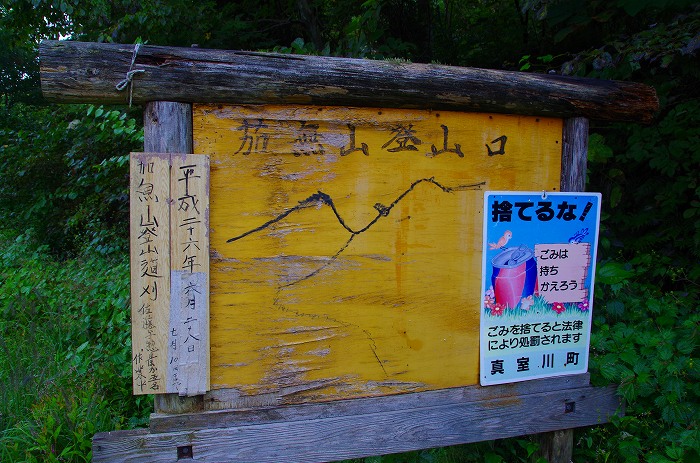 茄無山登山口
平成二十六年六月二八日
加無山登山道刈
七月10
捨てるな!
ごみは
持ち
かえろう
ごみを捨てると法律
により処罰されます
真室川町